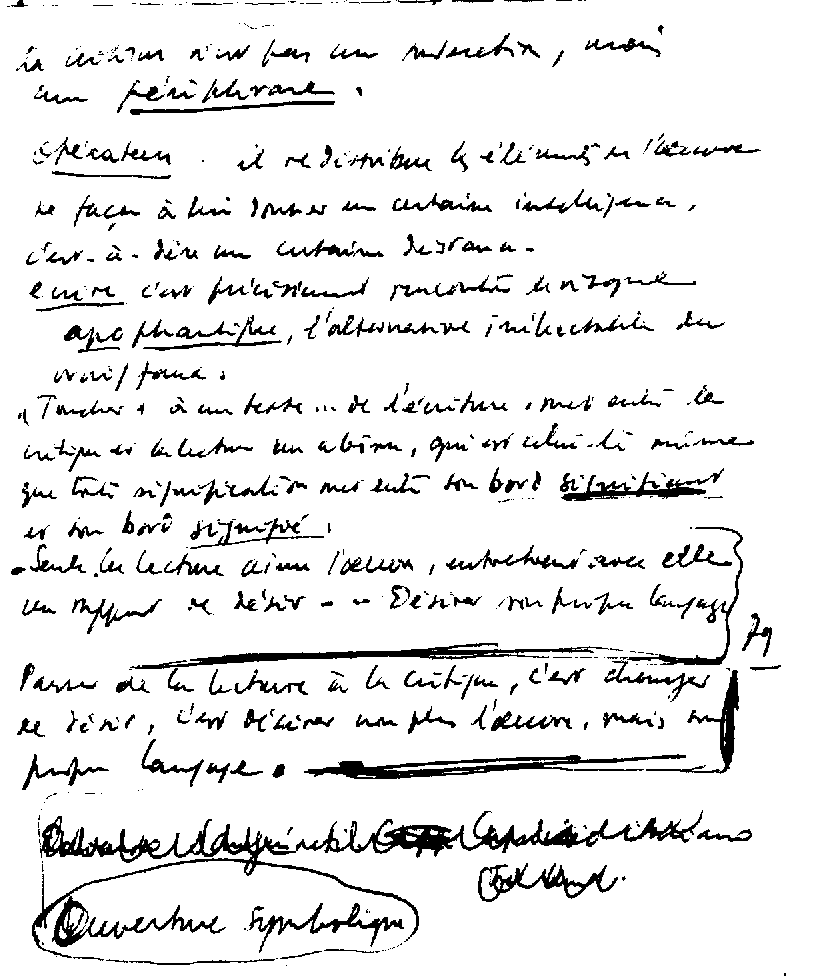 La critique n'est pas une traduction, mais
une périphrase.
Opérateur. il redistribue les éléments de l'œuvre
de façon à lui donner une certaine intelligence,
c'est-à-dire une certaine distance.
écrire c'est précisément rencontrer le risque
apophantique, l'alternative inéluctable du
vrai/faux.
"Toucher" à un texte... de l'écriture, met entre la
critique et la lecture un abîme, qui est celui-là même
que toute signification met entre son bord signifiant
et son bord signifié.
- Seule la lecture aime l'œuvre, entretient avec elle
un rapport de désir - - Désirer son propre langage
79
Passer de la lecture à la critique, c'est changer
de désir, c'est désirer non plus l'œuvre, mais son
propre langage.
Ouverture symbolique